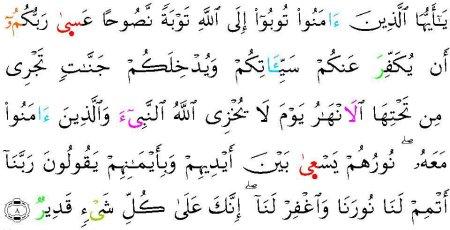 يَـٰٓأَيُّهَا ٱلَّذِينَ ءَامَنُوا۟ تُوبُوٓا۟ إِلَى ٱللَّهِ تَوْبَةً نَّصُوحًا عَسىٰ رَبُّكُمُۥٓ
أَن يُكَفِّرَ عَنكُمْ سَيِّـَٔاتِكُمْ وَيُدْخِلَكُمْ جَنَّـٰتٍ تَجْرِى
مِن تَحْتِهَا ٱلَانْهَـٰرُ يَوْمَ لَا يُخْزِى ٱللَّهُ ٱلنَّبِىٓءَ وَٱلَّذِينَ ءَامَنُوا۟
مَعَهُۥ ۖ نُورُهُمْ يَسْعىٰ بَيْنَ أَيْدِيهِمْ وَبِأَيْمَـٰنِهِمْ يَقُولُونَ رَبَّنَآ
أَتْمِمْ لَنَا نُورَنَا وَٱغْفِرْ لَنَآ ۖ إِنَّكَ عَلَىٰ كُلِّ شَىْءٍ قَدِيرٌ ٨